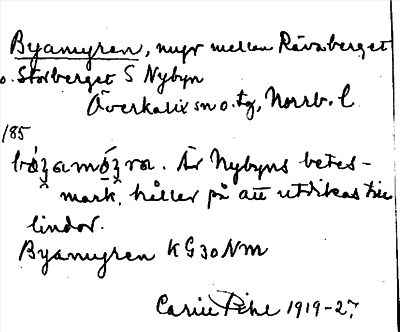 Byamyren, myr mellan Rävaberget
o. Storberget S Nybyn
Överkalix sn o. tg, Norrb. l.
185
Är Nybyns betes-
mark, håller på att utdikas till
lindor.
Byamyren KG30NM
Carin Pihl 1919-27